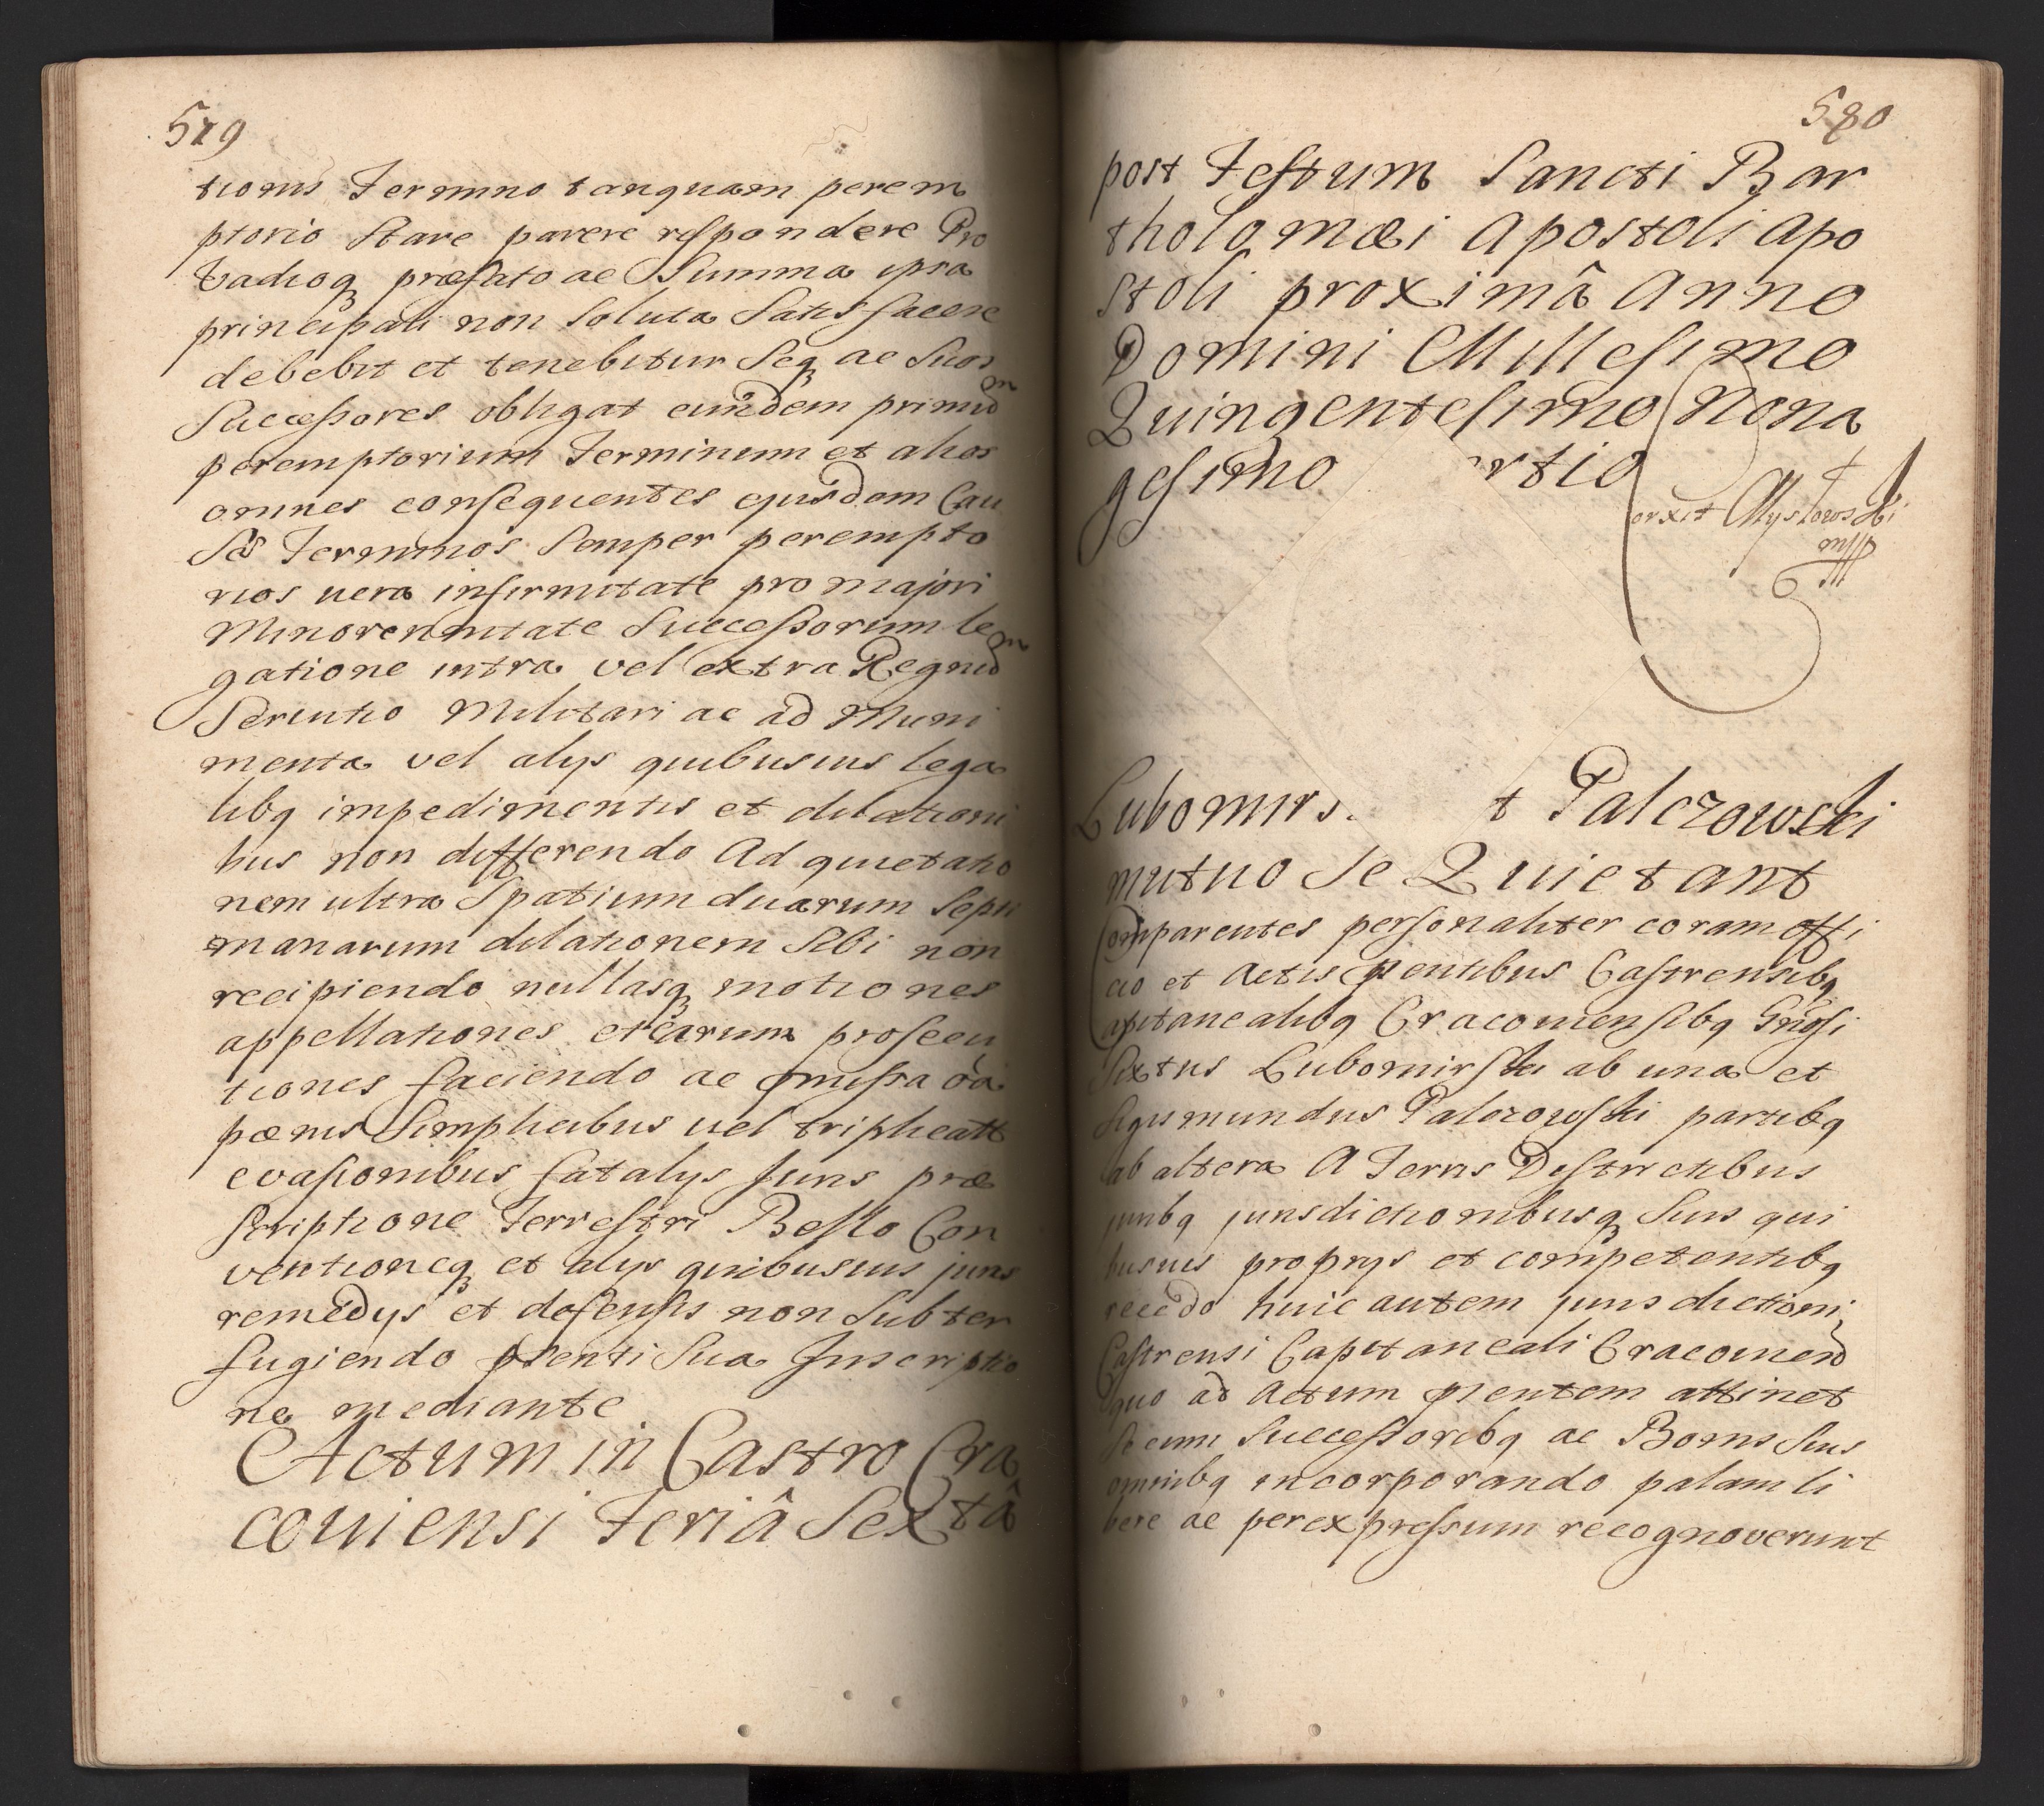 519
tionis Termino tanquam perem
ptorio Stare parere respondere Pro
Vadioq præfato ac Summa ipsa
principali non Soluta Satisfacere
debebit et tenebitur Seq ac Suos
Successores obligat eundem primū
peremptorium Terminum et alios
omnes consequentes ejusdem Cau
sæ Terminos Semper perempto
rios vera infirmitate pro majori
Minorennitate Successorum le
gatione intra vel extra Regnū
Servitio Militari ac ad Muni
menta vel alys quibusvis lega
libq impedimentis et dilationi
bus non differendo Ad quietatio
nem ultra Spatium duarum Septi
manarum dilationem Sibi non
recipiendo nullasq motiones
appellationes et earum prosecu
tiones faciendo ac omissa oā
pœnis Simplicibus vel triplicatt
evasionibus fatalys Juris præ
scriptione Terrestri Bello Con
ventioneq et alys quibusvis juris
remedys et defensis non Subter
fugiendo pnti Sua Inscriptio
ne mediante
Actum in Castro Cra
coviensi Feriâ Sextâ
580
post Festum Sancti Bar
tholomæi Apostoli Apo
stoli proximâ Anno
Domini Millesimo
Quingentesimo Nona
gesimo rtio
orxit Mystowski
mpp
Lubomirs t Palczowski
mutuo Se Quietant
Comparentes personaliter coram offi
cio et Actis pntibus Castrensibq
apitanealibq Cracoviensibq Gnosi
Sixtus Lubomirski ab una et
Sigismundus Palczowski partibq
ab altera A Terris Districtibus
juribq jurisdictionibusq Suis qui
busvis proprys et competentibq
recedo huic autem jurisdictioni
Castrensi Capitaneali Cracovien
quo ad Actum pntem attinet
Se cum Successoribq ac Bonis Suis
omnibq incorporando palam li
bere ac per expressum recognoverunt